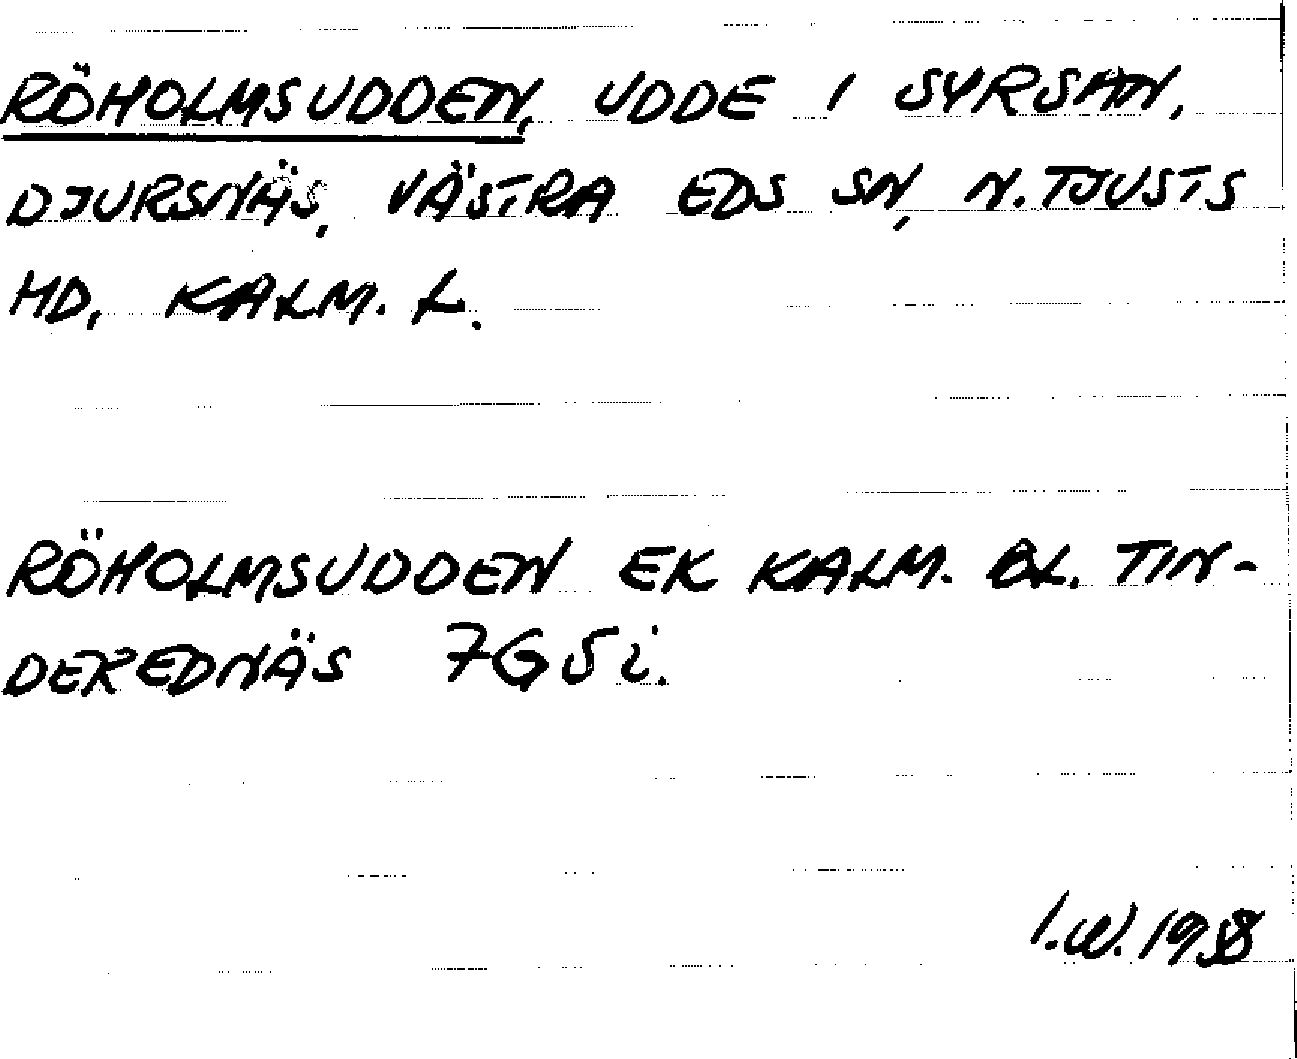 RÖHOLMSUDDEN, UDDE I SYRSAN,
DJURSNÄS, VÄSTRA EDS SN, N. TJUSTS
HD, KALM. L.
RÖHOLMSUDDEN EK KALM. BL. TIN-
DEREDNÄS 7G5i.
I.W. 1958